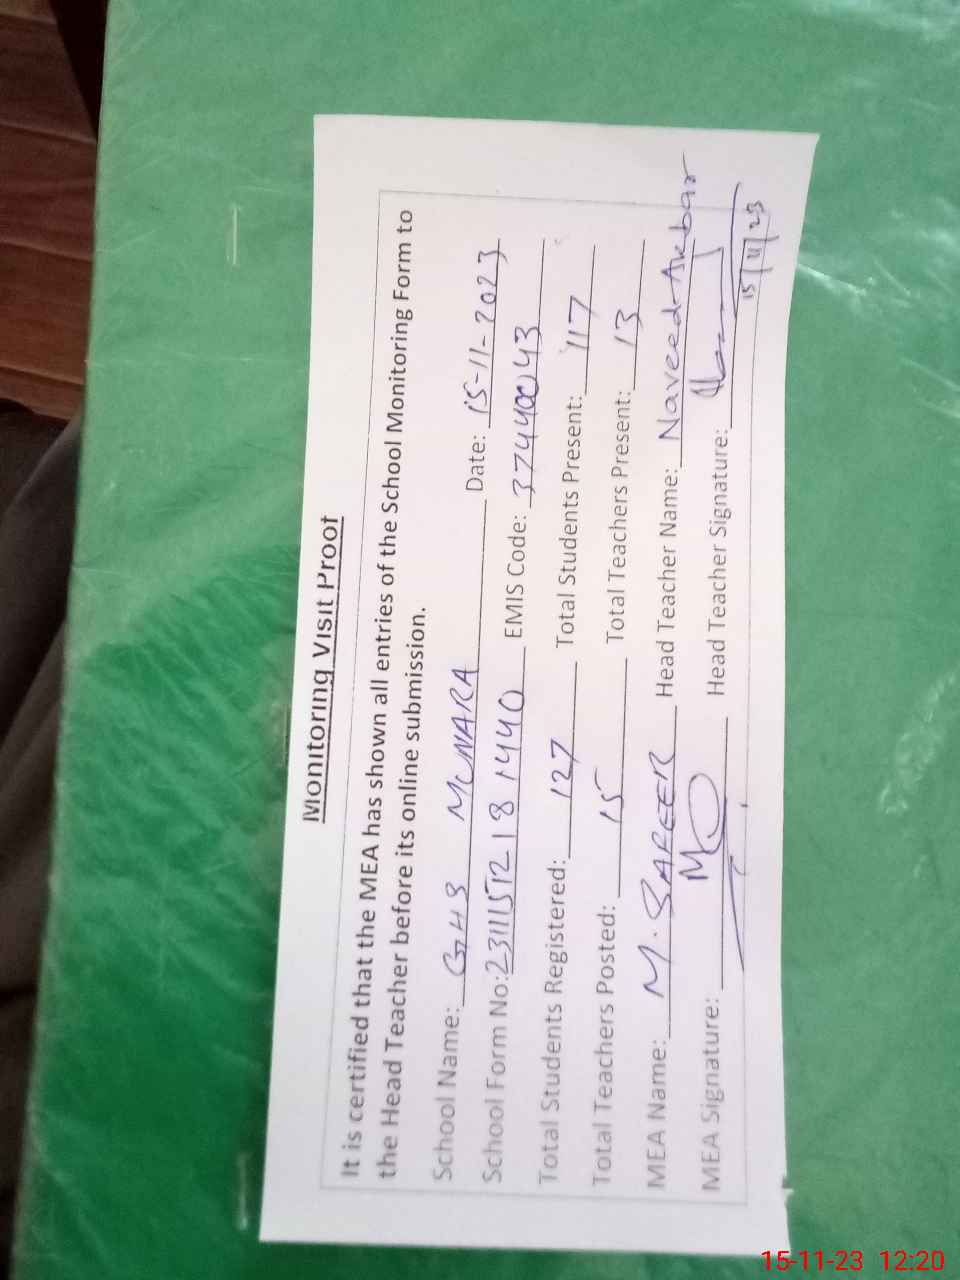 Monitoring Visit Proof
It is certified that the MEA has shown all entries of the School Monitoring Form to
the Head Teacher before its online submission.
School Name: GHS MUNARA Date: 15-11-2023
School Form No: 23111512181440 EMIS Code: 37440043
Total Students Registered: 127 Total Students Present: 117
Total Teachers Posted: 15 Total Teachers Present: 13
MEA Name: M. SAFEER Head Teacher Name: Naveed Akbar
MEA Signature: Head Teacher Signature:
15/11/23
15-11-23 12:20